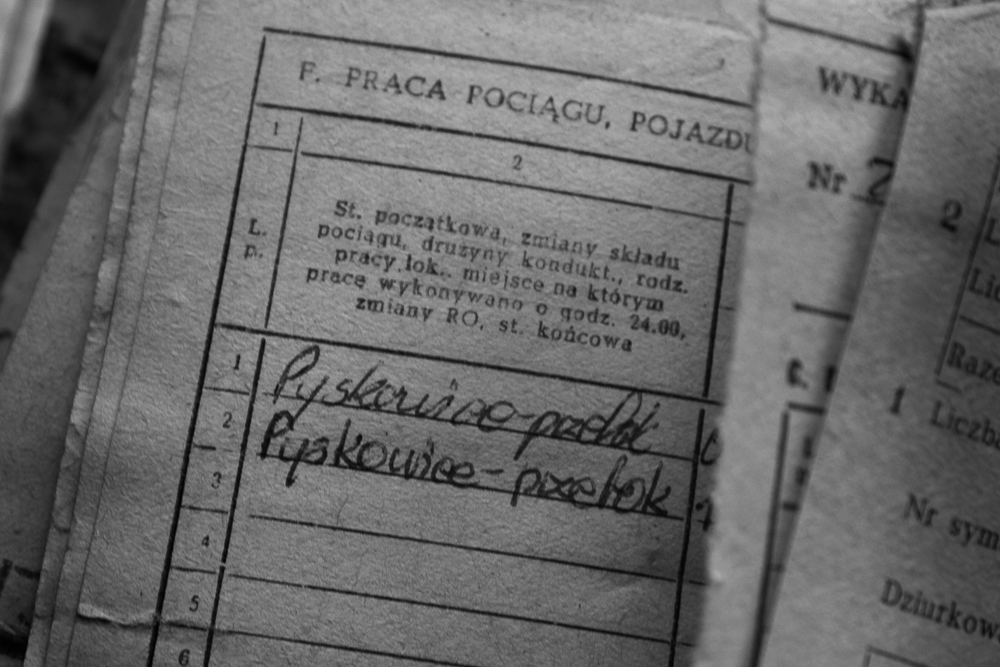 F. PRACA POCIĄGU, POJAZDU
1
2
L.
p.
St. początkowa, zmiany składu
pociągu, drużyny kondukt., rodz.
pracy lok., miejsce na którym
pracę wykonywano o godz. 24.00,
zmiany RO, st. końcowa
1 Pyskowice-przetok
2 Pyskowice-przetok
3
4
5
6
WYKA
Nr 2
2
Razo
1 Liczb
Nr sym
Dziurkow